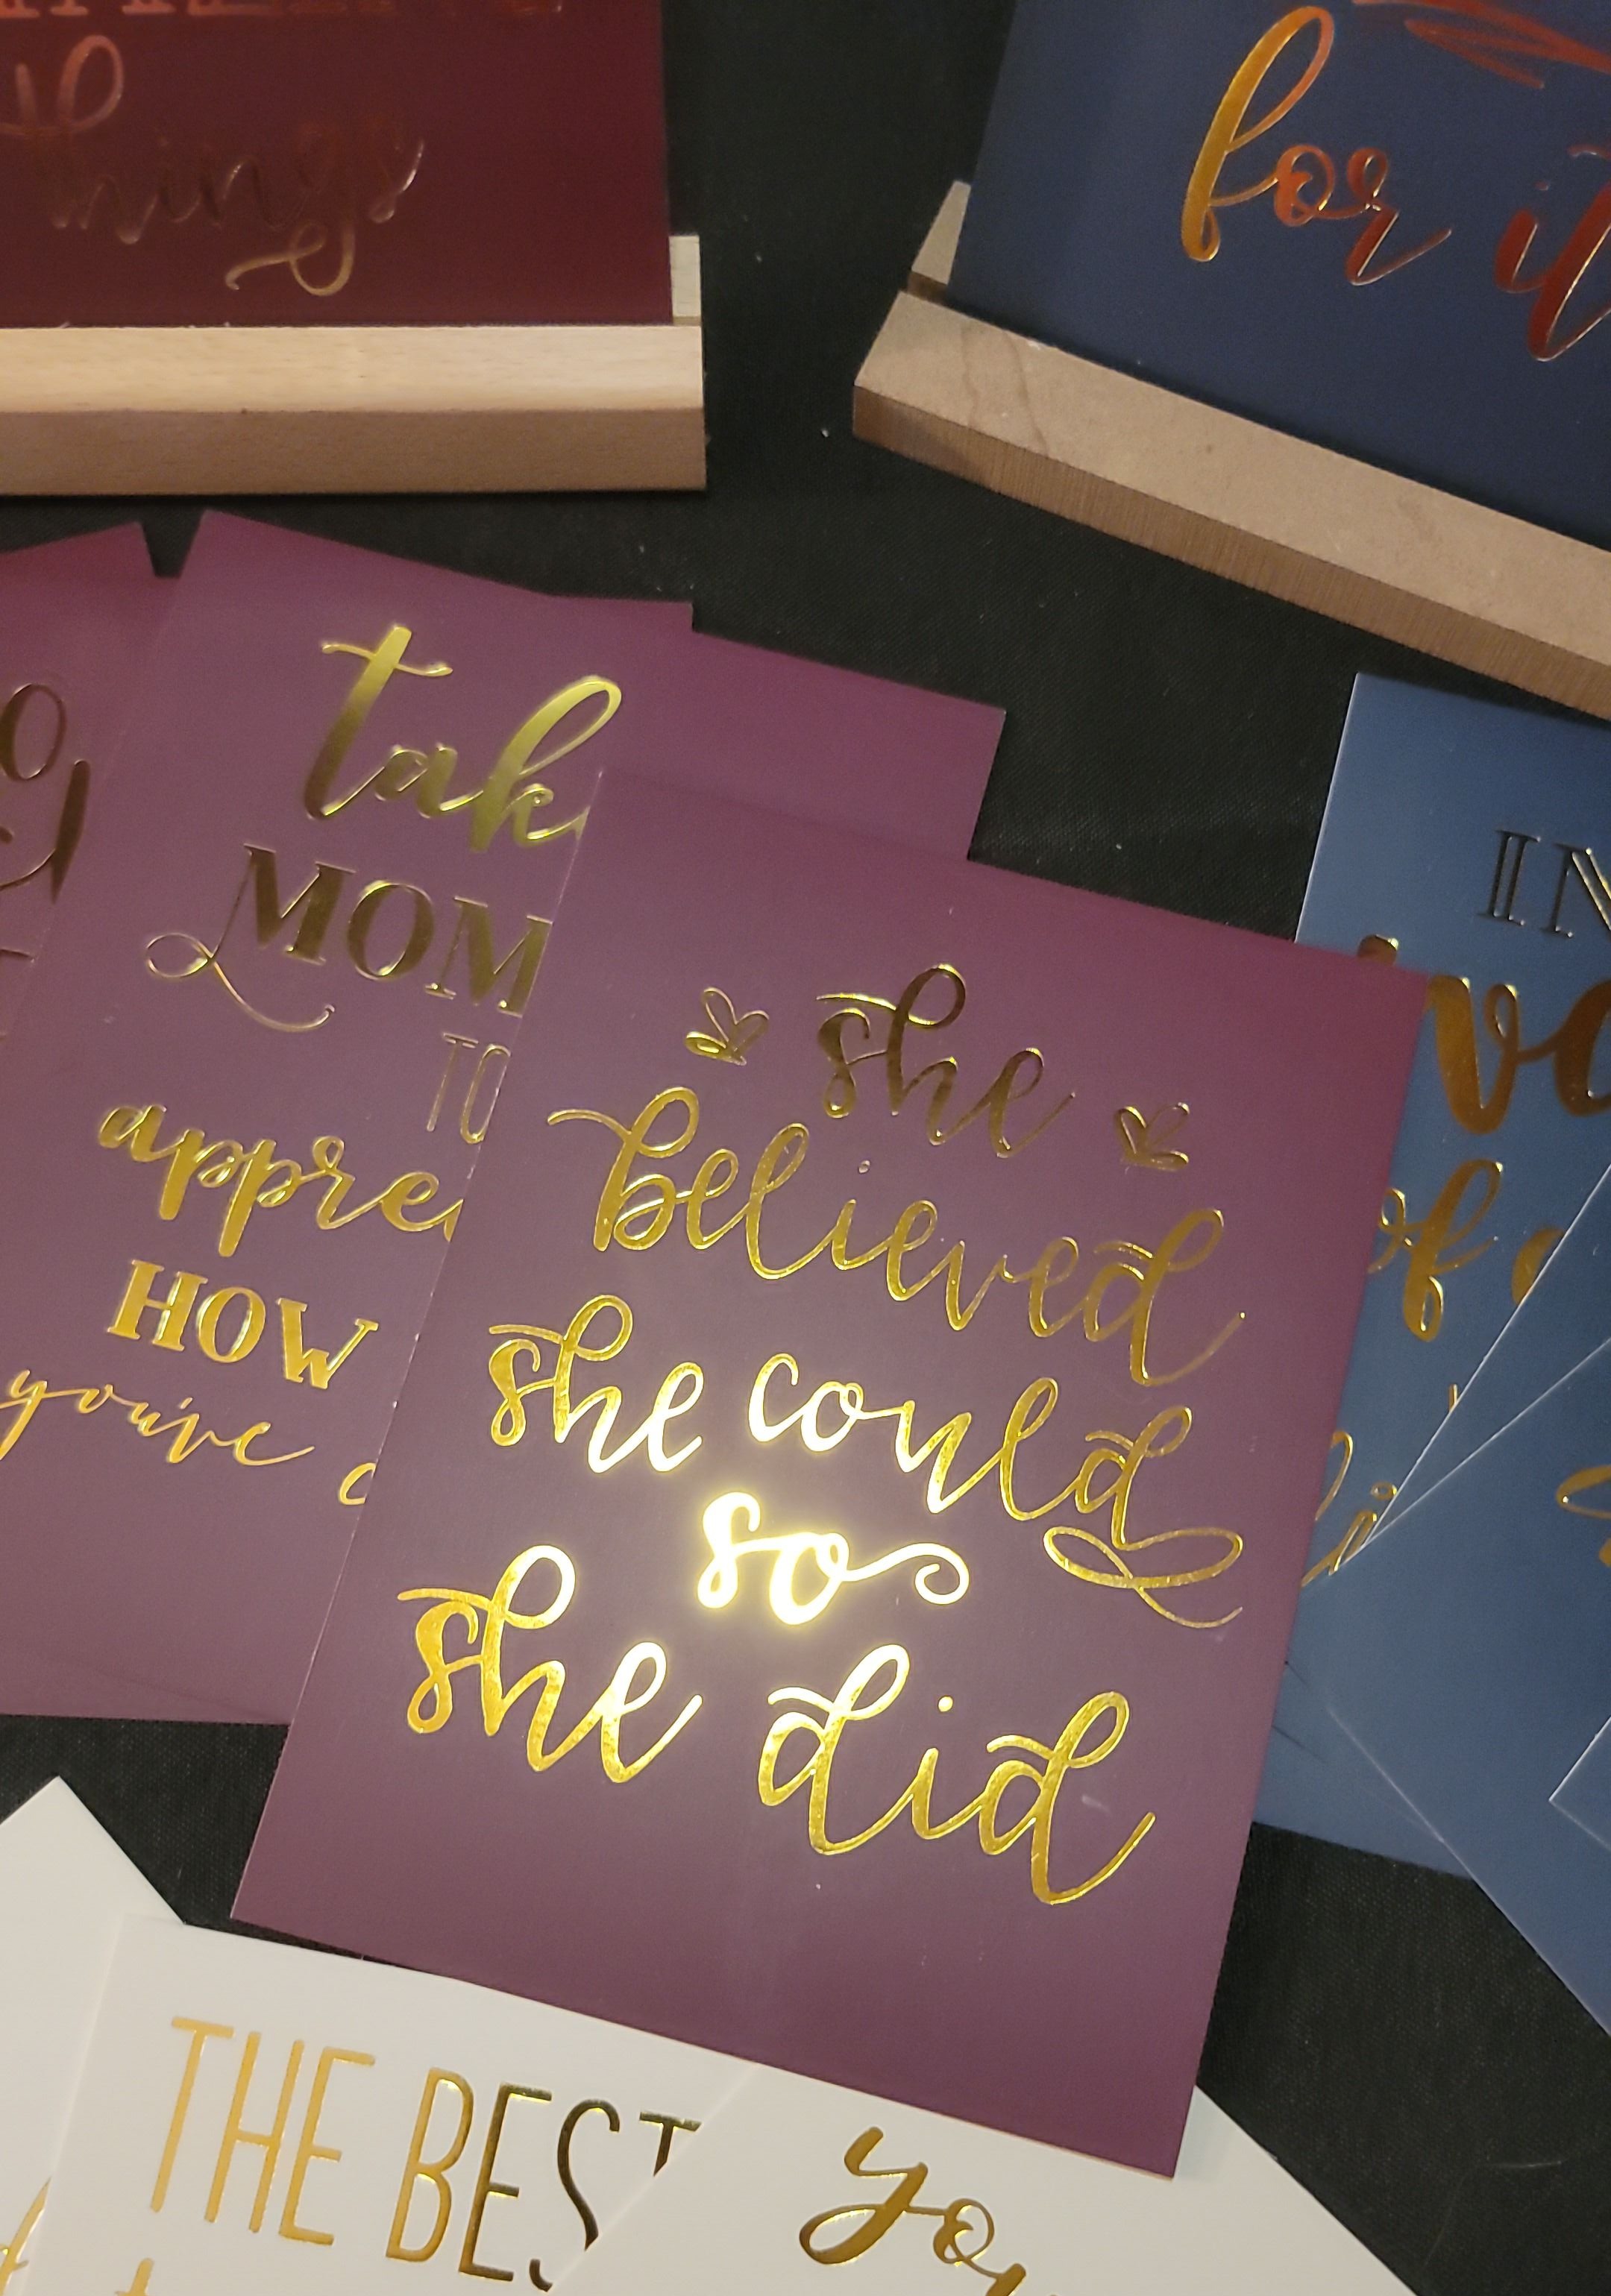 things
for it
tak
MOM
TO
appre
HOW
you've
she
believed
she could
so
she did
IN
of
THE BEST
you